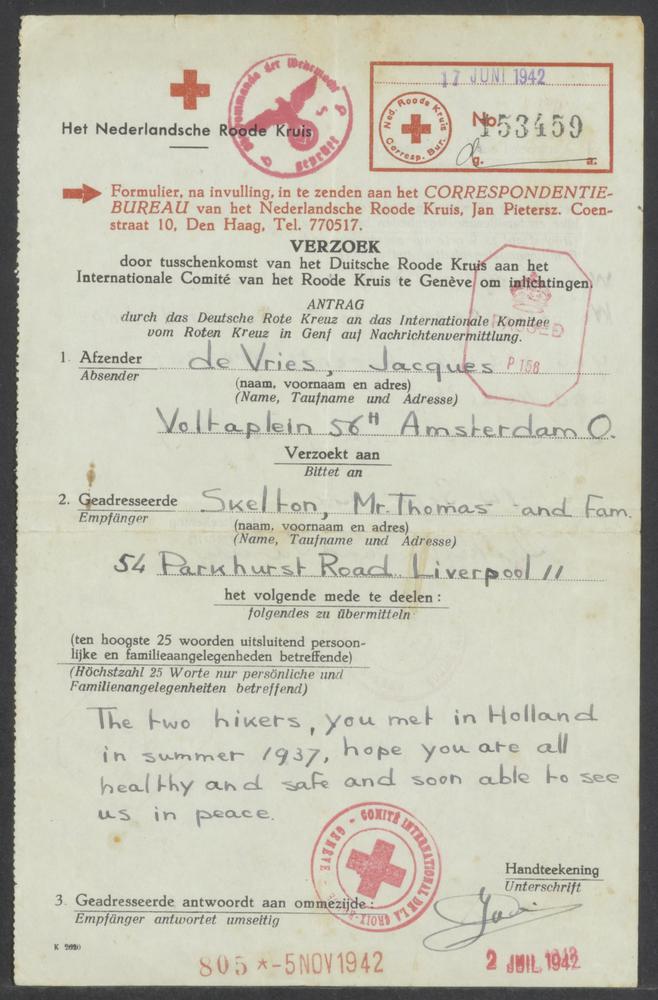 17 JUNI 1942
Het Nederlandsche Roode Kruis
Ned. Roode Kruis
Corresp. Bur.
No. 153459
g. a.
Formulier, na invulling, in te zenden aan het CORRESPONDENTIE-
BUREAU van het Nederlandsche Roode Kruis, Jan Pietersz. Coen-
straat 10, Den Haag, Tel. 770517.
VERZOEK
door tusschenkomst van het Duitsche Roode Kruis aan het
Internationale Comité van het Roode Kruis te Genève om inlichtingen.
ANTRAG
durch das Deutsche Rote Kreuz an das Internationale Komitee
vom Roten Kreuz in Genf auf Nachrichtenvermittlung.
PASSED
P 156
1. Afzender de Vries, Jacques
Absender
(naam, voornaam en adres)
(Name, Taufname und Adresse)
Voltaplein 56H Amsterdam O.
Verzoekt aan
Bittet an
2. Geadresseerde Skelton, Mr. Thomas and Fam.
Empfänger
(naam, voornaam en adres)
(Name, Taufname und Adresse)
54 Parkhurst Road. Liverpool 11
het volgende mede te deelen:
folgendes zu übermitteln
(ten hoogste 25 woorden uitsluitend persoon-
lijke en familieaangelegenheden betreffende)
(Höchstzahl 25 Worte nur persönliche und
Familienangelegenheiten betreffend)
The two hikers, you met in Holland
in summer 1937, hope you are all
healthy and safe and soon able to see
us in peace.
COMITÉ INTERNATIONAL DE LA CROIX-ROUGE - GENÈVE -
Handteekening
Unterschrift
3. Geadresseerde antwoordt aan ommezijde:
Empfänger antwortet umseitig
805 *-5 NOV 1942
2 JUIL 1942